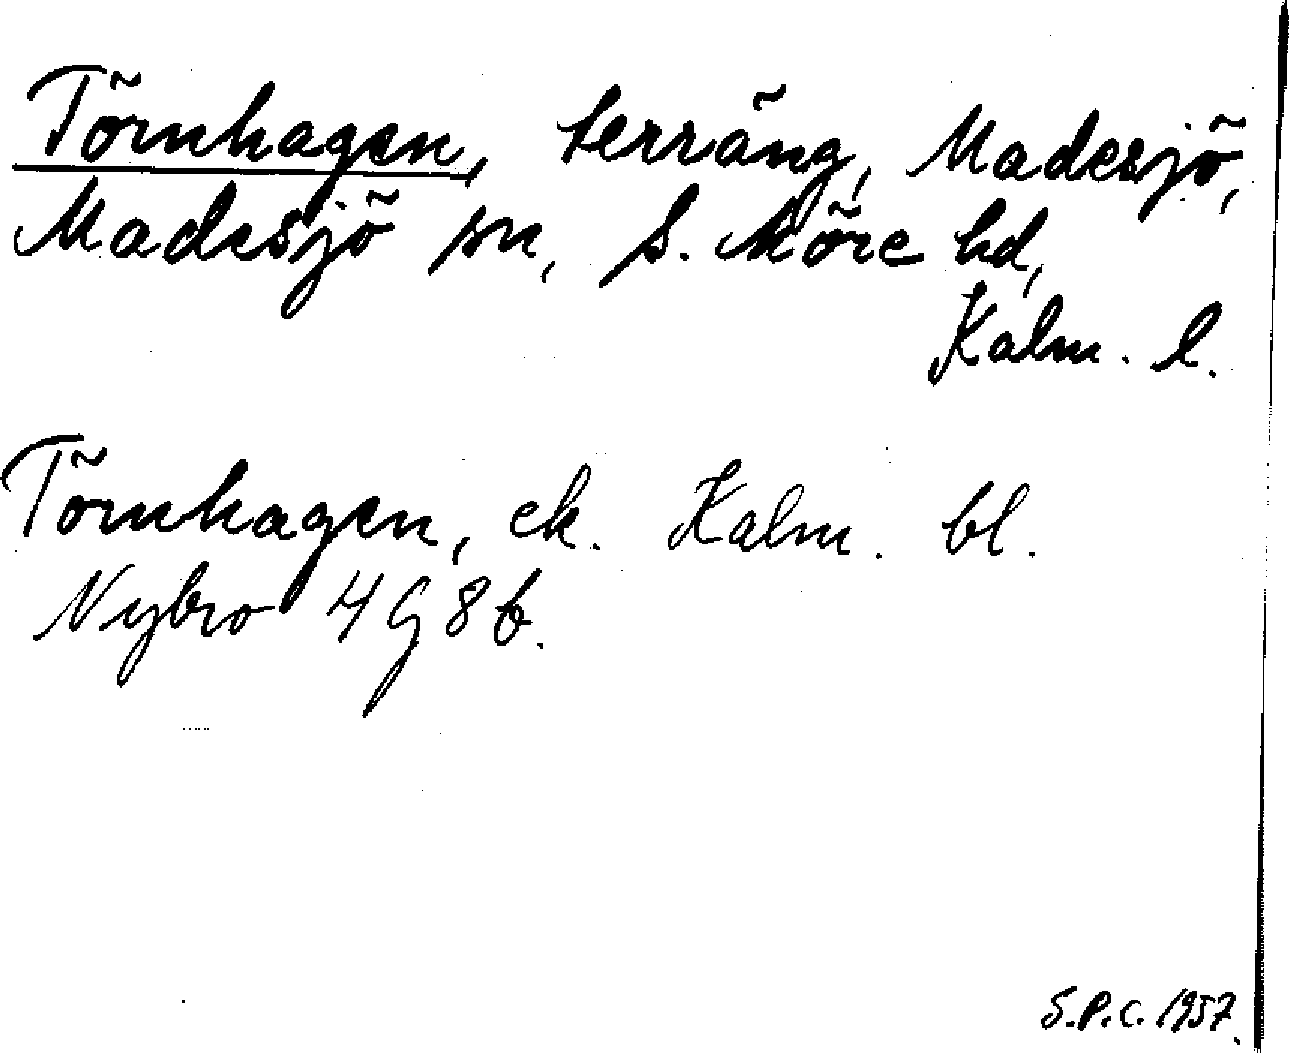 Törnhagen, terräng, Madesjö,
Madesjö sn, S. Möre hd,
Kalm. l.
Törnhagen, ek. Kalm. bl.
Nybro 4 G 8 b.
S.P.C. 1957.